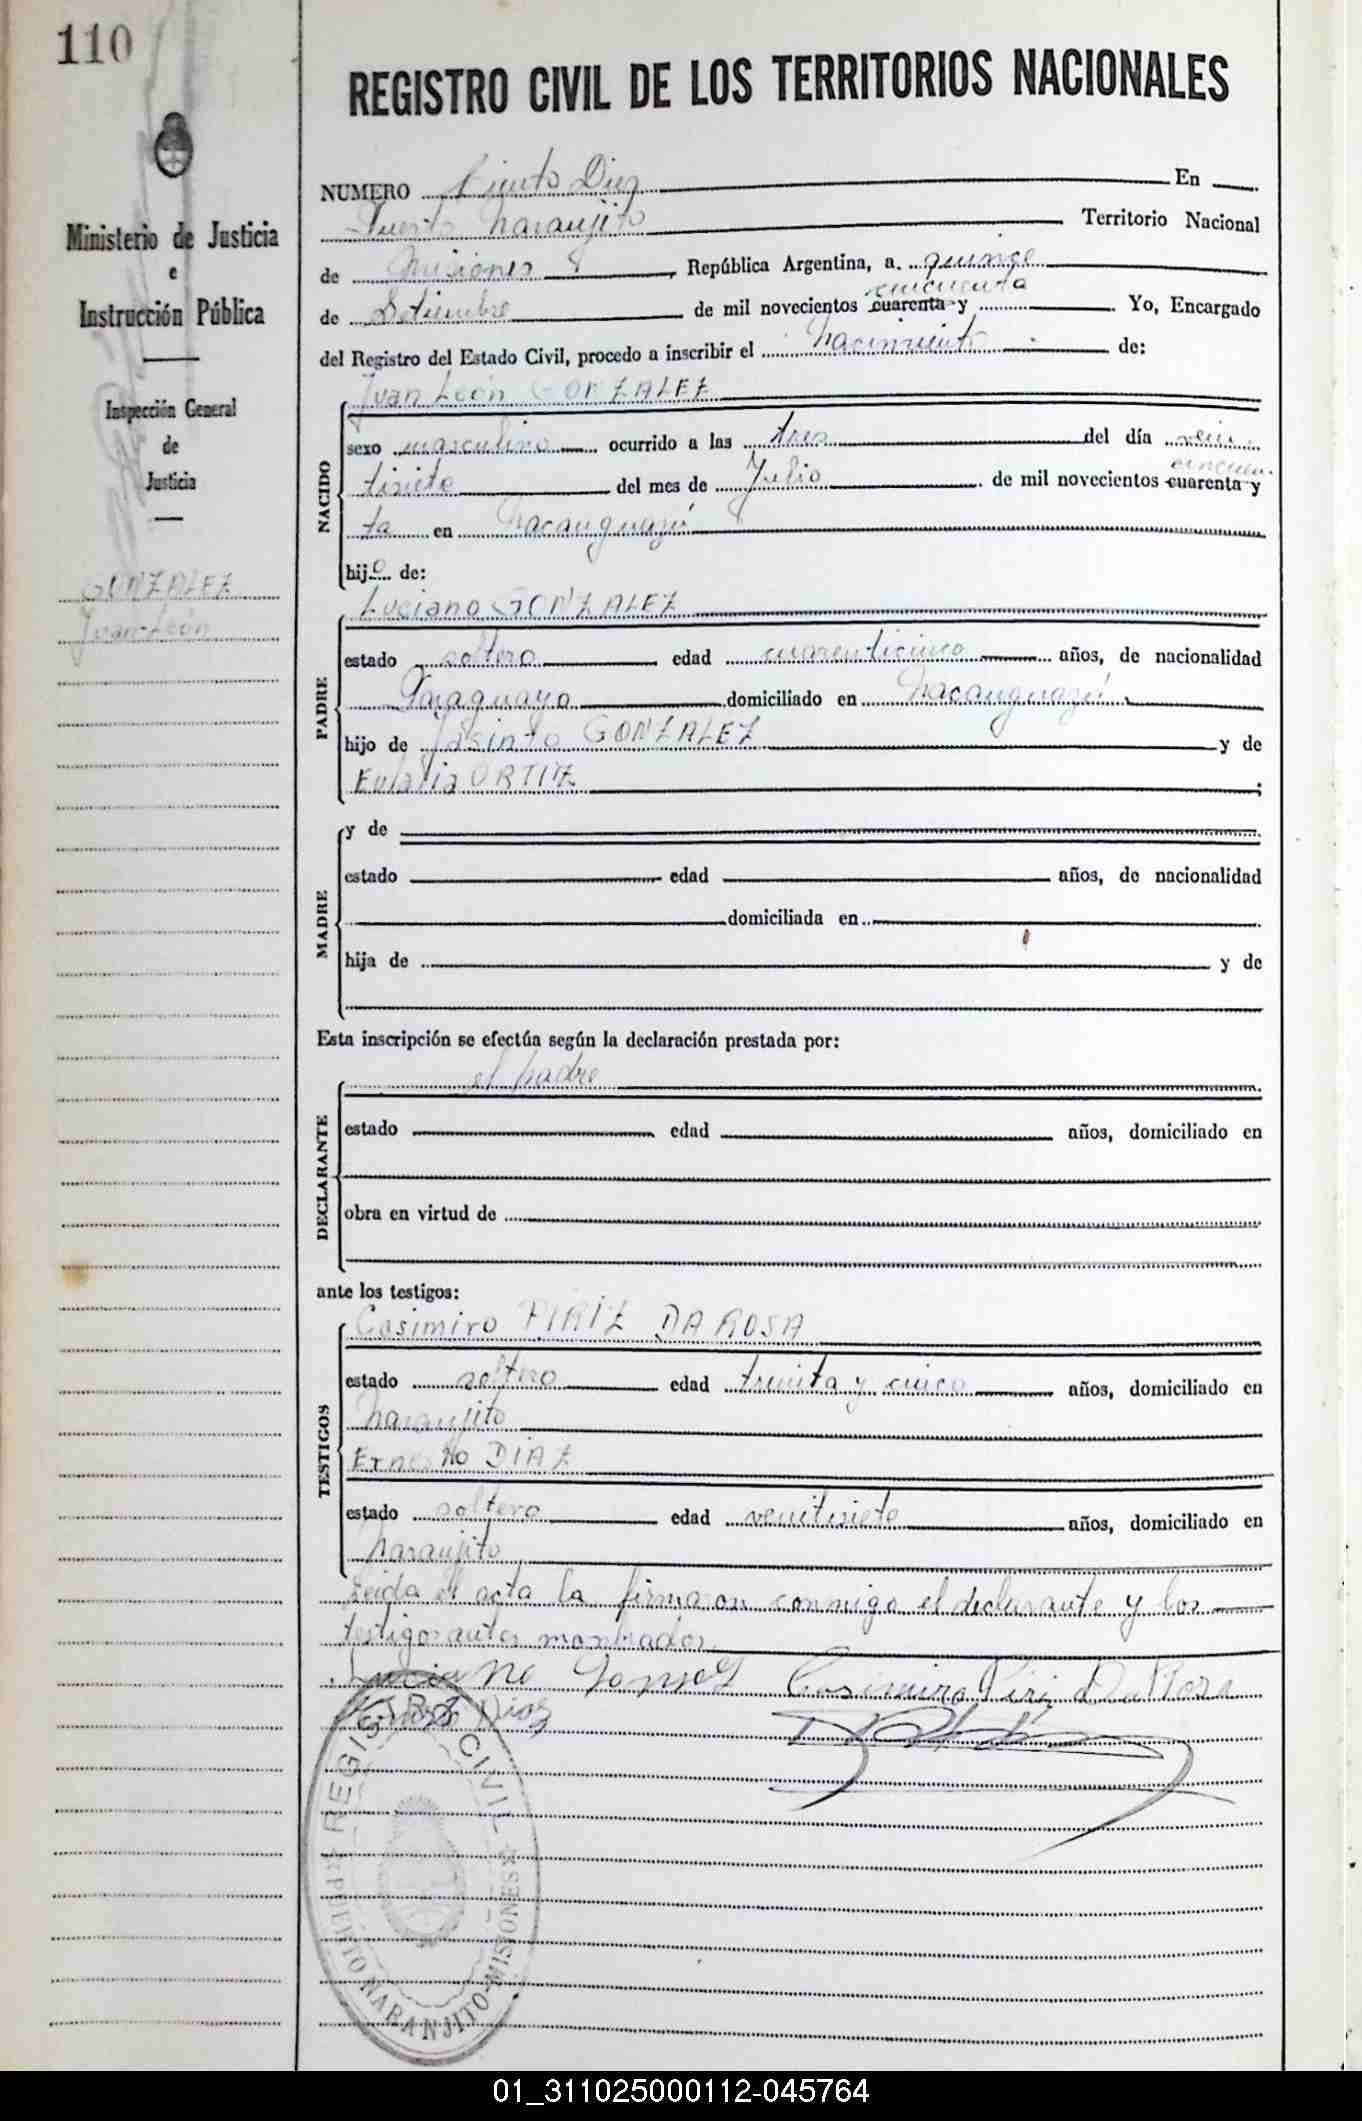 110
REGISTRO CIVIL DE LOS TERRITORIOS NACIONALES
Ministerio de Justicia
e
Instrucción Pública
Inspección General
de
Justicia
GONZALEZ
Juan León
NUMERO Ciento Diez En
Puerto Naranjito Territorio Nacional
de Misiones República Argentina, a quince
cincuenta
de Setiembre de mil novecientos cuarenta y Yo, Encargado
del Registro del Estado Civil, procedo a inscribir el nacimiento de:
NACIDO
Juan León GONZALEZ
sexo masculino ocurrido a las tres del día vein
cincuen
tisiete del mes de Julio de mil novecientos cuarenta y
ta en Ñacanguazú
hijo de:
PADRE
Luciano GONZALEZ
estado soltero edad cuarenticinco años, de nacionalidad
Paraguayo domiciliado en Ñacanguazú
hijo de Jasinto GONZALEZ y de
Eulalia ORTIZ ;
MADRE
y de
estado edad años, de nacionalidad
domiciliada en
hija de y de
Esta inscripción se efectúa según la declaración prestada por:
DECLARANTE
el padre
estado edad años, domiciliado en
obra en virtud de
ante los testigos:
TESTIGOS
Casimiro PIRIZ DA ROSA
estado soltero edad treinta y cinco años, domiciliado en
Naranjito
Ernesto DIAZ
estado soltero edad veintisiete años, domiciliado en
Naranjito
Leida el acta la firmaron conmigo el declarante y los
testigos antes mombrados.
Luciano Gonsalez Casimiro Piriz Da Rosa
Ernesto Diaz
REGISTRO CIVIL
PUERTO NARANJITO-MISIONES
01_311025000112-045764